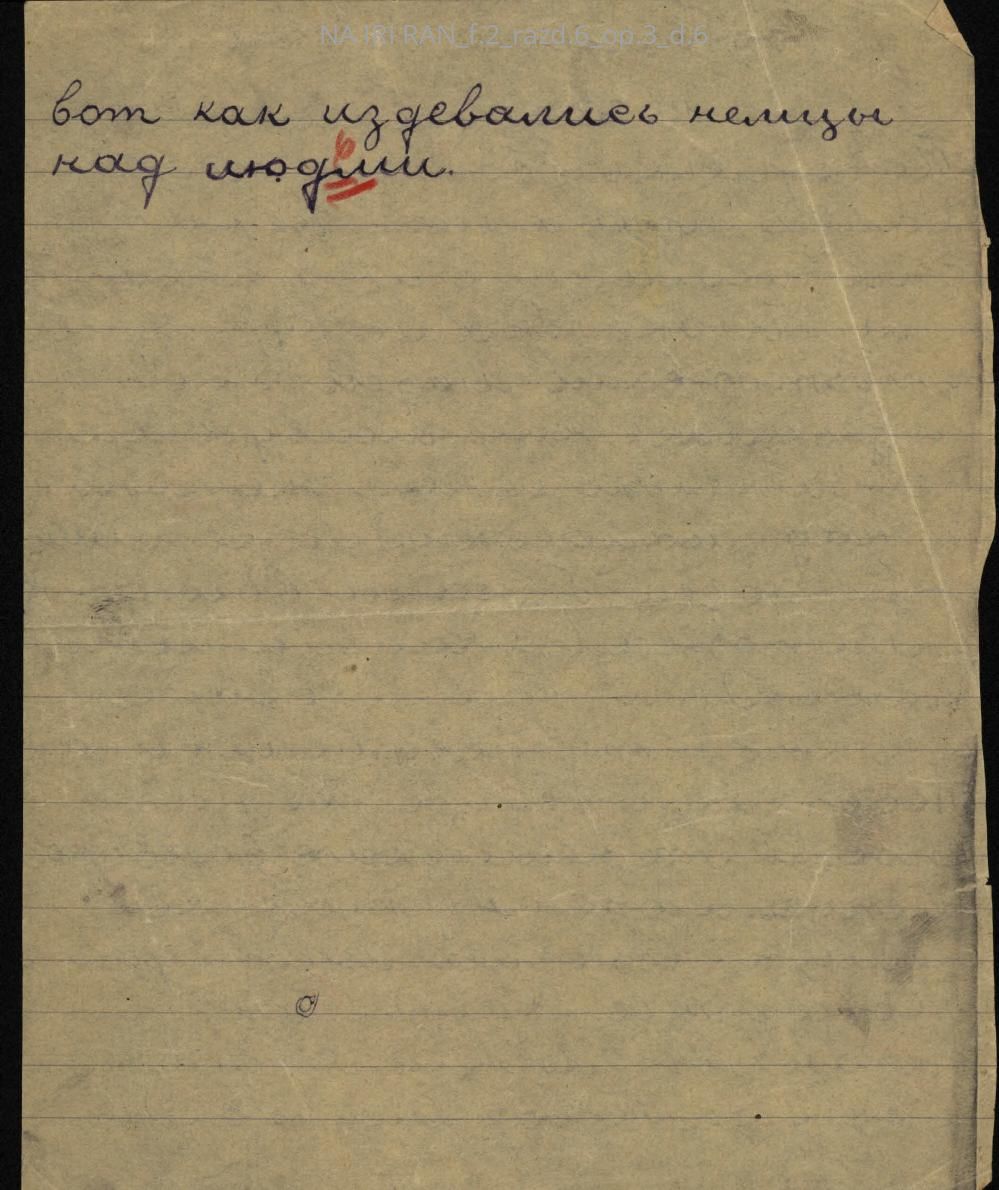 NA IRI RAN_f.2_razd.6_op.3_d.6
вот как издевались немцы
над людми.
ь